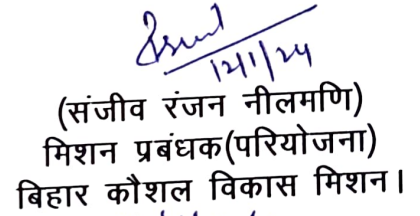 12/1/24
(संजीव रंजन नीलमणि)
मिशन प्रबंधक(परियोजना)
बिहार कौशल विकास मिशन।